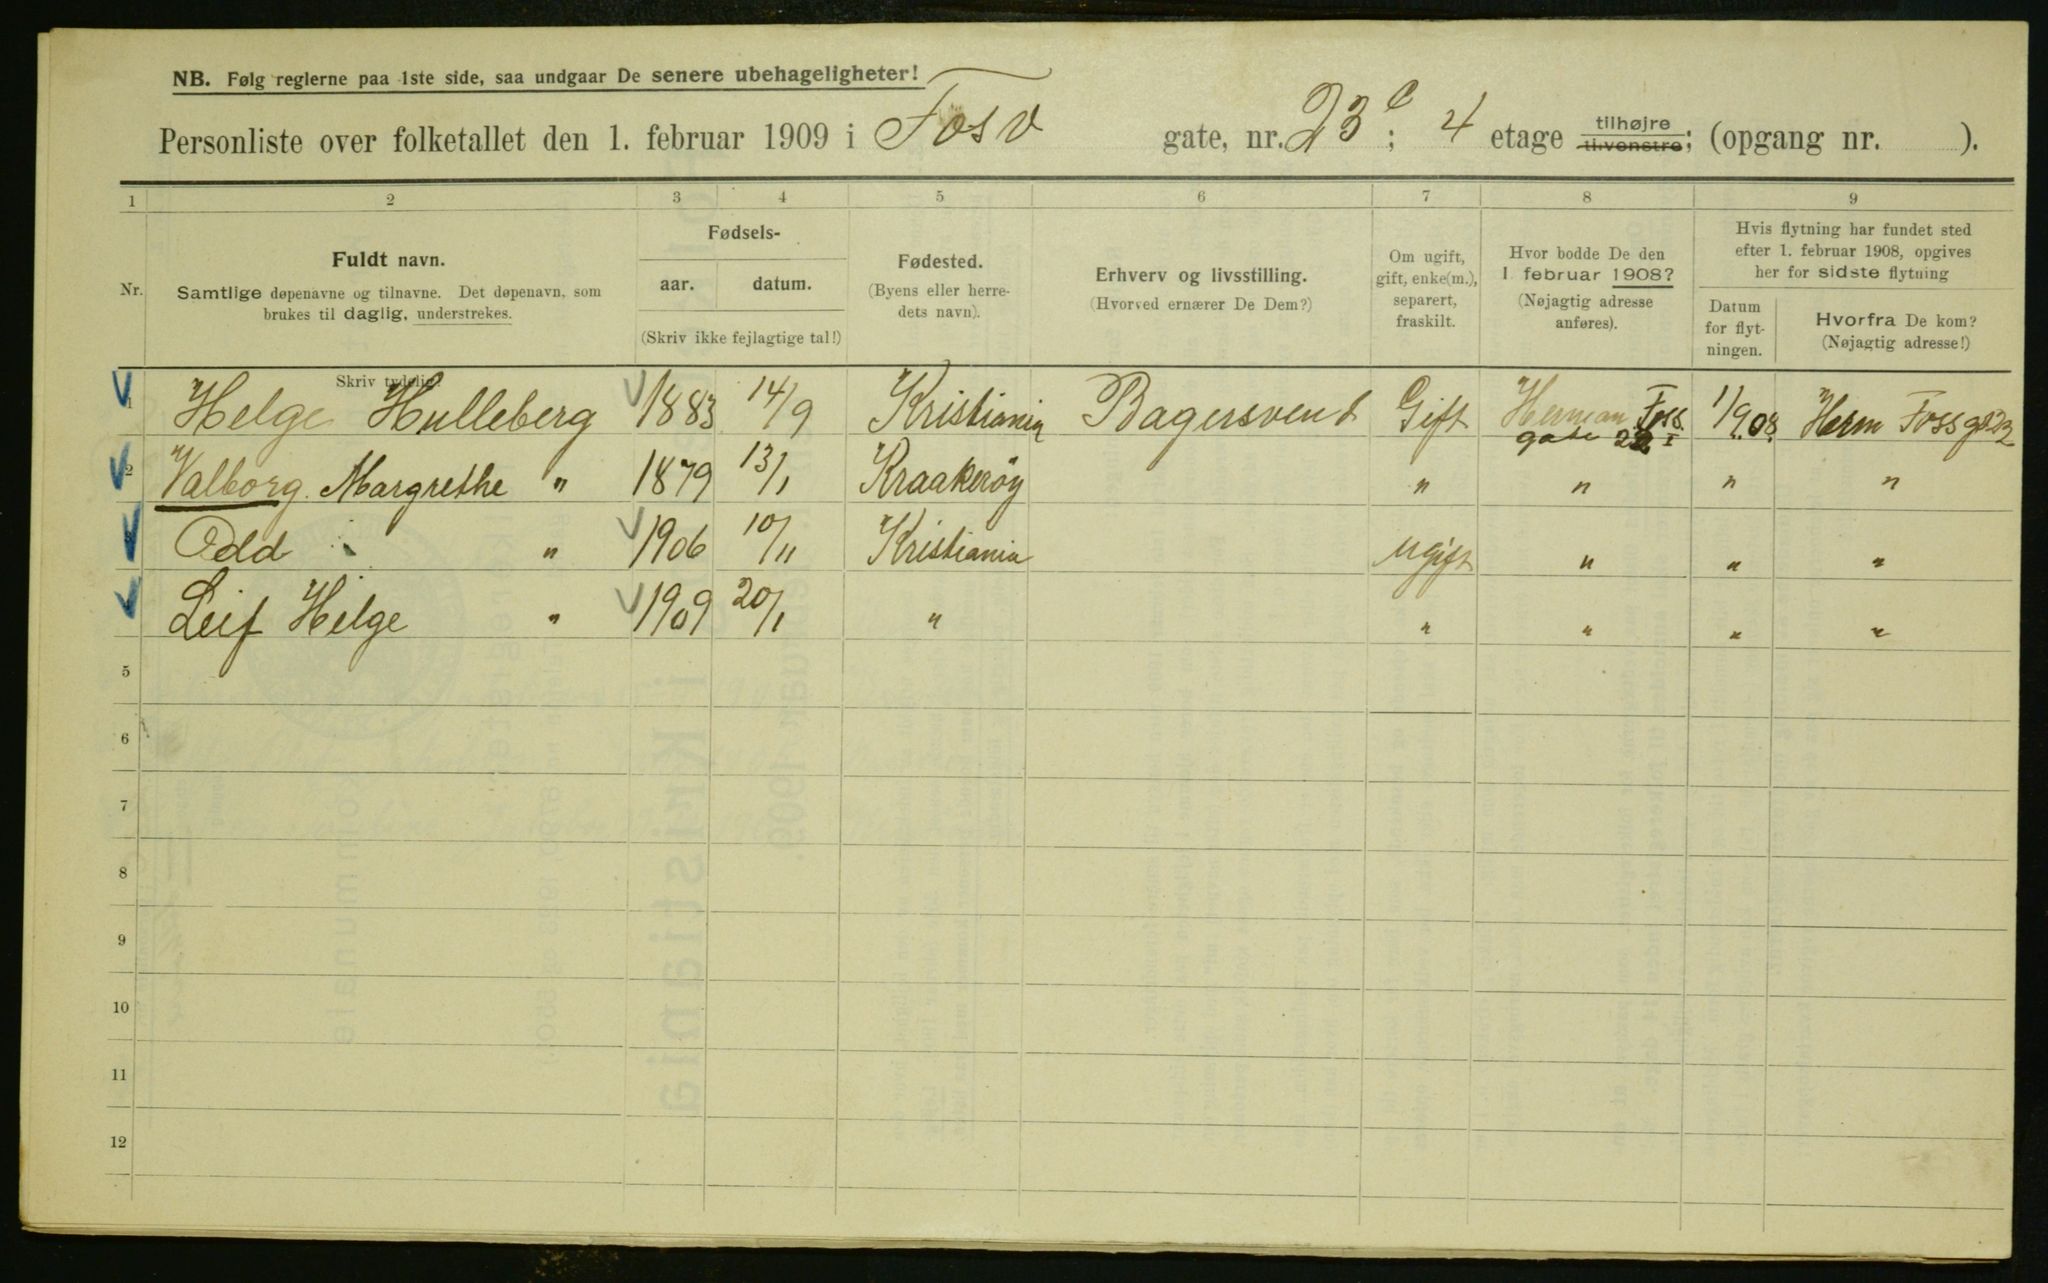 NB. Følg reglerne paa 1ste side, saa undgaar De senere ubehageligheter!
Personliste over folketallet den 1. februar 1909 i Fosv gate, nr. 23 c; 4 etage tilhøjre tilvenstre; (opgang nr. ).
1 2 3 4 5 6 7 8 9
Nr.
Fuldt navn.
Samtlige døpenavne og tilnavne. Det døpenavn, som
brukes til daglig, understrekes.
Skriv tydelig!
Fødsels-
aar. datum.
(Skriv ikke fejlagtige tal!)
Fødested.
(Byens eller herre-
dets navn).
Erhverv og livsstilling.
(Hvorved ernærer De Dem?)
Om ugift,
gift, enke(m.),
separert,
fraskilt.
Hvor bodde De den
1. februar 1908?
(Nøjagtig adresse
anføres).
Hvis flytning har fundet sted
efter 1. februar 1908, opgives
her for sidste flytning
Datum
for flyt-
ningen.
Hvorfra De kom?
(Nøjagtig adresse!)
1 Helge Hulleberg 1883 14/9 Kristiania Bagersvend Gift Herman Foss. gate 22 I 1/9 08 Herm Fossg 22
2 Valborg Margrethe " 1879 13/1 Kraakerøy " " " "
3 Odd " 1906 10/11 Kristiania ugift " " "
4 Leif Helge " 1909 20/1 " " " " "
5
6
7
8
9
10
11
12